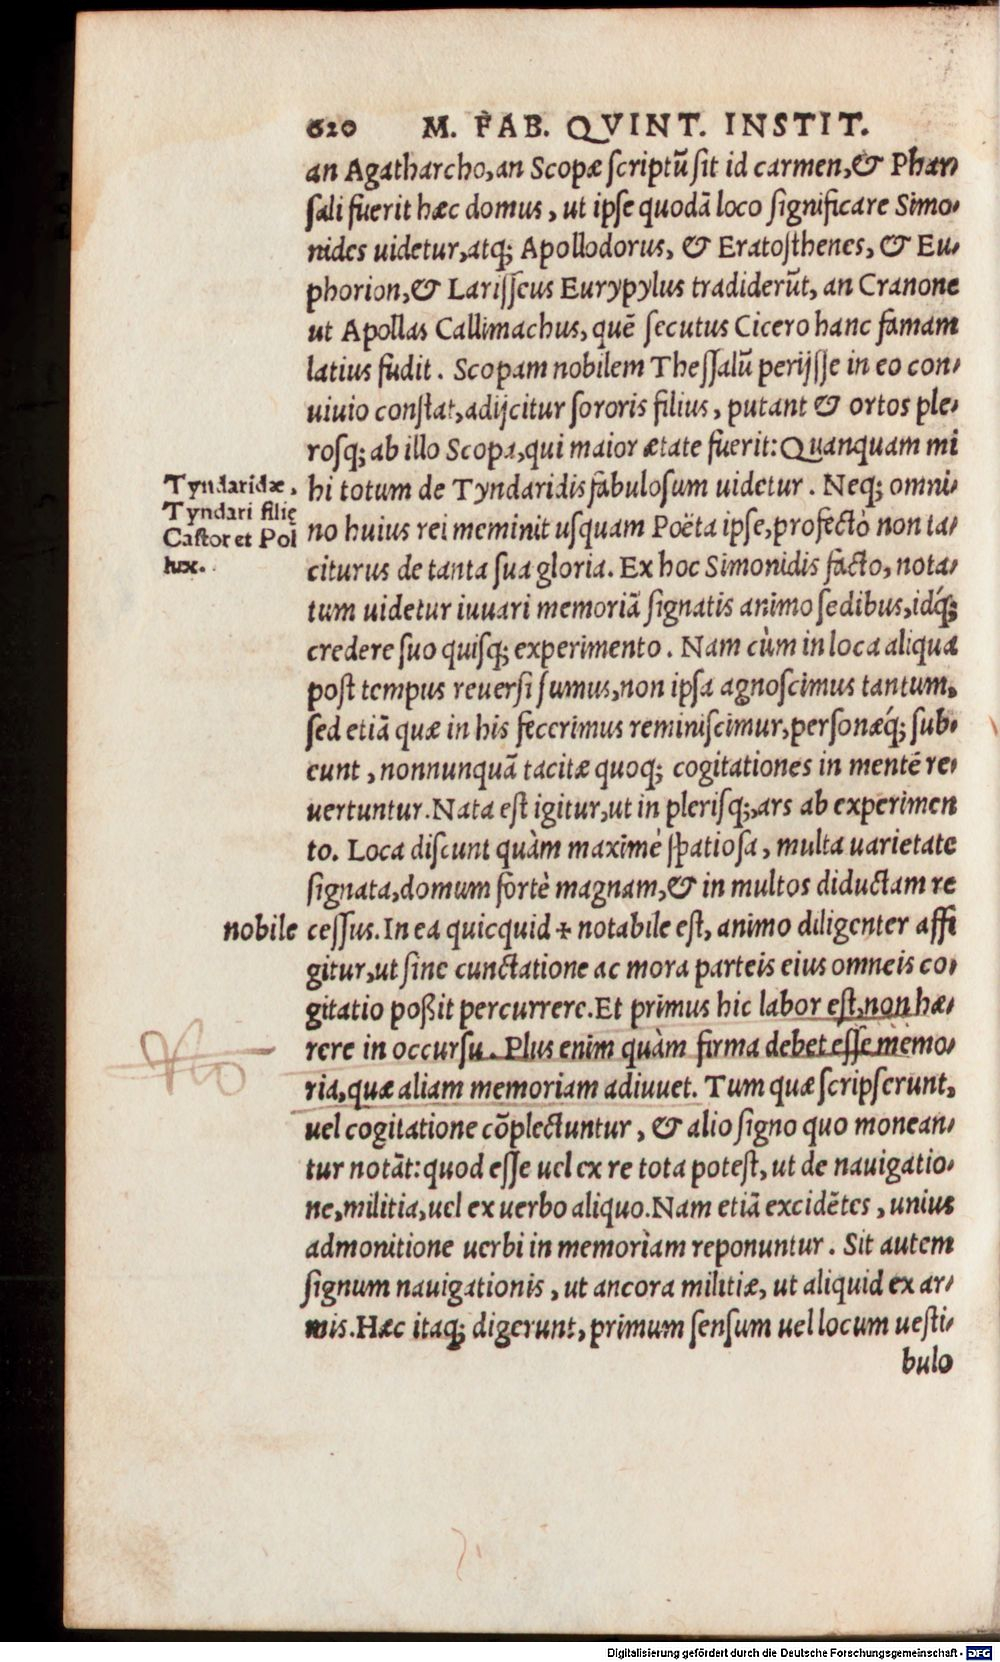 620 M. FAB. QVINT. INSTIT.
an Agatharcho, an Scopæ ſcriptũ ſit id carmen, & Phar⸗
ſali fuerit hæc domus, ut ipſe quodã loco ſignificare Simo⸗
nides uidetur, atq; Apollodorus, & Eratoſthenes, & Eu⸗
phorion, & Lariſſeus Eurypylus tradiderũt, an Cranone
ut Apollas Callimachus, quẽ ſecutus Cicero hanc famam
latius fudit. Scopam nobilem Theſſalũ perijſſe in eo con⸗
uiuio conſtat, adijcitur ſororis filius, putant & ortos ple⸗
roſq; ab illo Scopa, qui maior ætate fuerit: Quanquam mi
Tyndaridæ,
Tyndari filię
Caſtor et Pol
lux.
hi totum de Tyndaridis fabuloſum uidetur. Neq; omni⸗
no huius rei meminit uſquam Poëta ipſe, profectò non ta⸗
citurus de tanta ſua gloria. Ex hoc Simonidis facto, nota⸗
tum uidetur iuuari memoriã ſignatis animo ſedibus, idq́;
credere ſuo quiſq; experimento. Nam cùm in loca aliqua
poſt tempus reuerſi ſumus, non ipſa agnoſcimus tantum,
ſed etiã quæ in his fecerimus reminiſcimur, perſonæq́; ſub⸗
eunt, nonnunquã tacitæ quoq; cogitationes in mentẽ re⸗
uertuntur. Nata eſt igitur, ut in pleriſq;, ars ab experimen
to. Loca diſcunt quàm maximè ſpatioſa, multa uarietate
ſignata, domum fortè magnam, & in multos diductam re
nobile
ceſſus. In ea quicquid ✢ notabile eſt, animo diligenter affi
gitur, ut ſine cunctatione ac mora parteis eius omneis co⸗
gitatio poßit percurrere. Et primus hic labor eſt, non hæ⸗
rere in occurſu. Plus enim quàm firma debet eſſe memo⸗
ria, quæ aliam memoriam adiuuet. Tum quæ ſcripſerunt,
uel cogitatione cõplectuntur, & alio ſigno quo monean⸗
tur notãt: quod eſſe uel ex re tota poteſt, ut de nauigatio⸗
ne, militia, uel ex uerbo aliquo. Nam etiã excidẽtes, unius
admonitione uerbi in memoriam reponuntur. Sit autem
ſignum nauigationis, ut ancora militiæ, ut aliquid ex ar⸗
mis. Hæc itaq; digerunt, primum ſenſum uel locum ueſti⸗
bulo
Digitalisierung gefördert durch die Deutsche Forschungsgemeinschaft - DFG